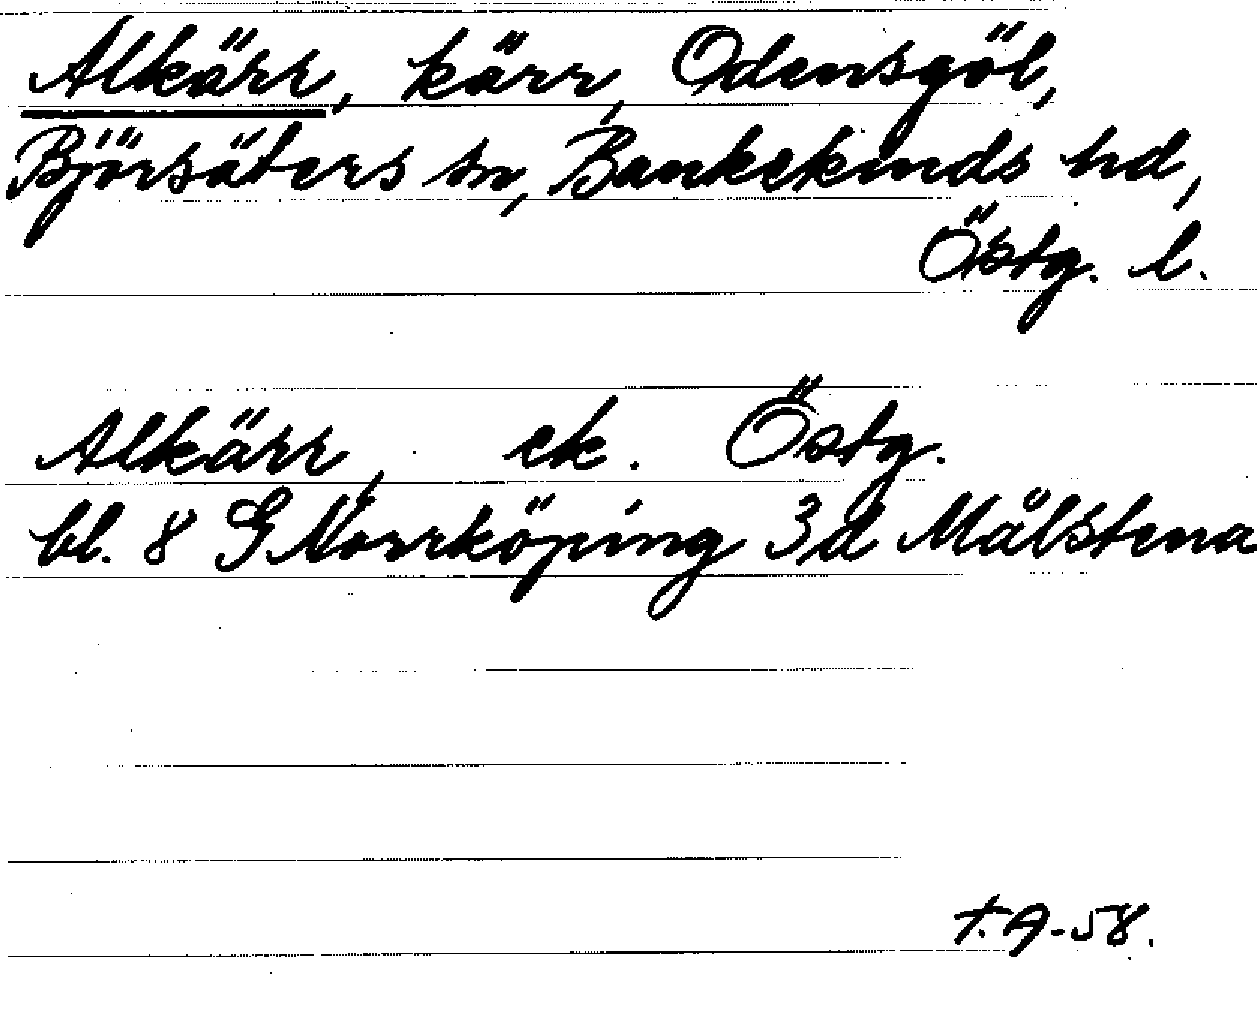 Alkärr, kärr, Odensgöl,
Björsäters sn, Bankekinds hd,
Östg. l.
Alkärr, ek. Östg.
bl. 8 G Norrköping 3d Målstena
T.A-58.